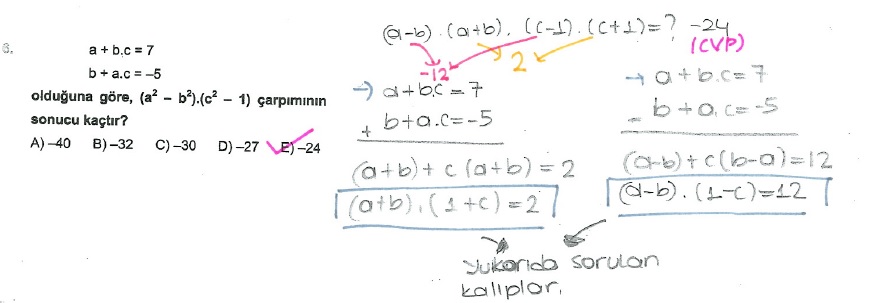 6.
a + b.c = 7
b + a.c = –5
olduğuna göre, (a² – b²).(c² – 1) çarpımının
sonucu kaçtır?
A) –40 B) –32 C) –30 D) –27 E) –24
(a-b).(a+b).(c-1).(c+1)=? -24
(CVP)
-12
2
→ a+b.c=7
+ b+a.c=-5
(a+b)+c(a+b)=2
(a+b).(1+c)=2
→ a+b.c=7
- b+a.c=-5
(a-b)+c(b-a)=12
(a-b).(1-c)=12
Yukarıda sorulan
kalıplar.